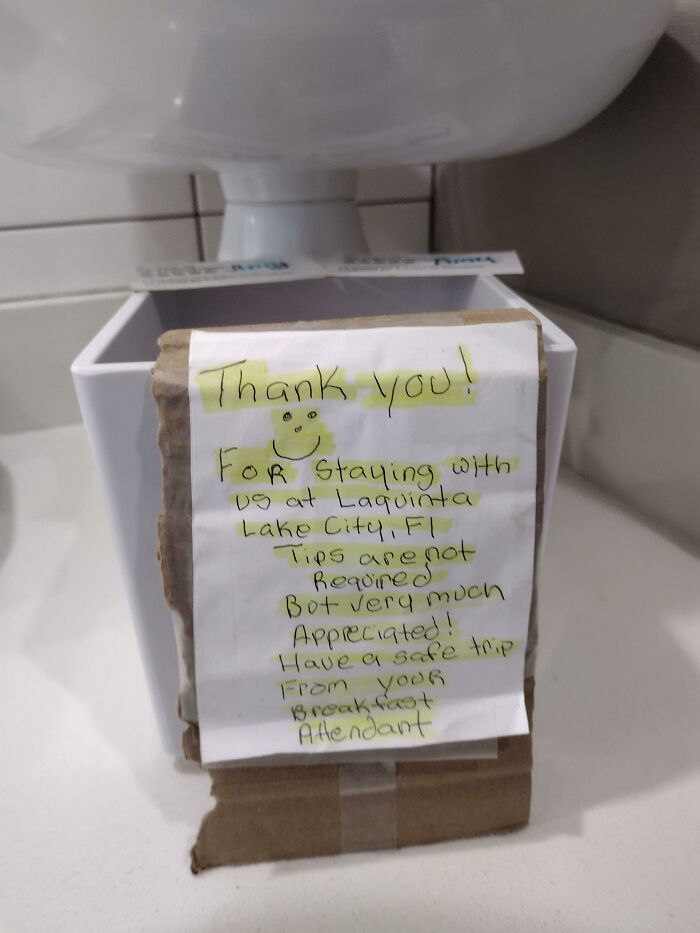 Thank you!
FOR Staying with
us at Laquinta
Lake City, Fl
Tips are not
Required
But very much
Appreciated!
Have a safe trip
From your
Breakfast
Attendant